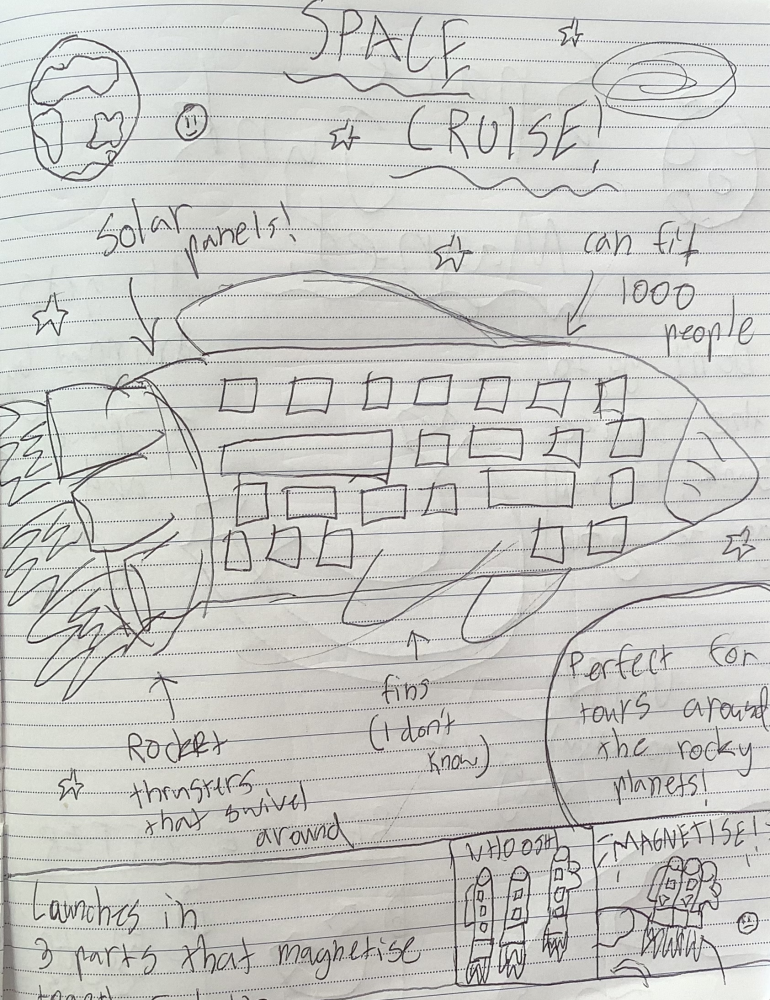 SPACE
CRUISE!
Solar
panels!
can fit
1000
people
fins
(I don't
know)
Rocket
thrusters
that swivel
around
Perfect for
tours around
the rocky
planets!
WHOOSH
MAGNETISE!
Launches in
3 parts that magnetise